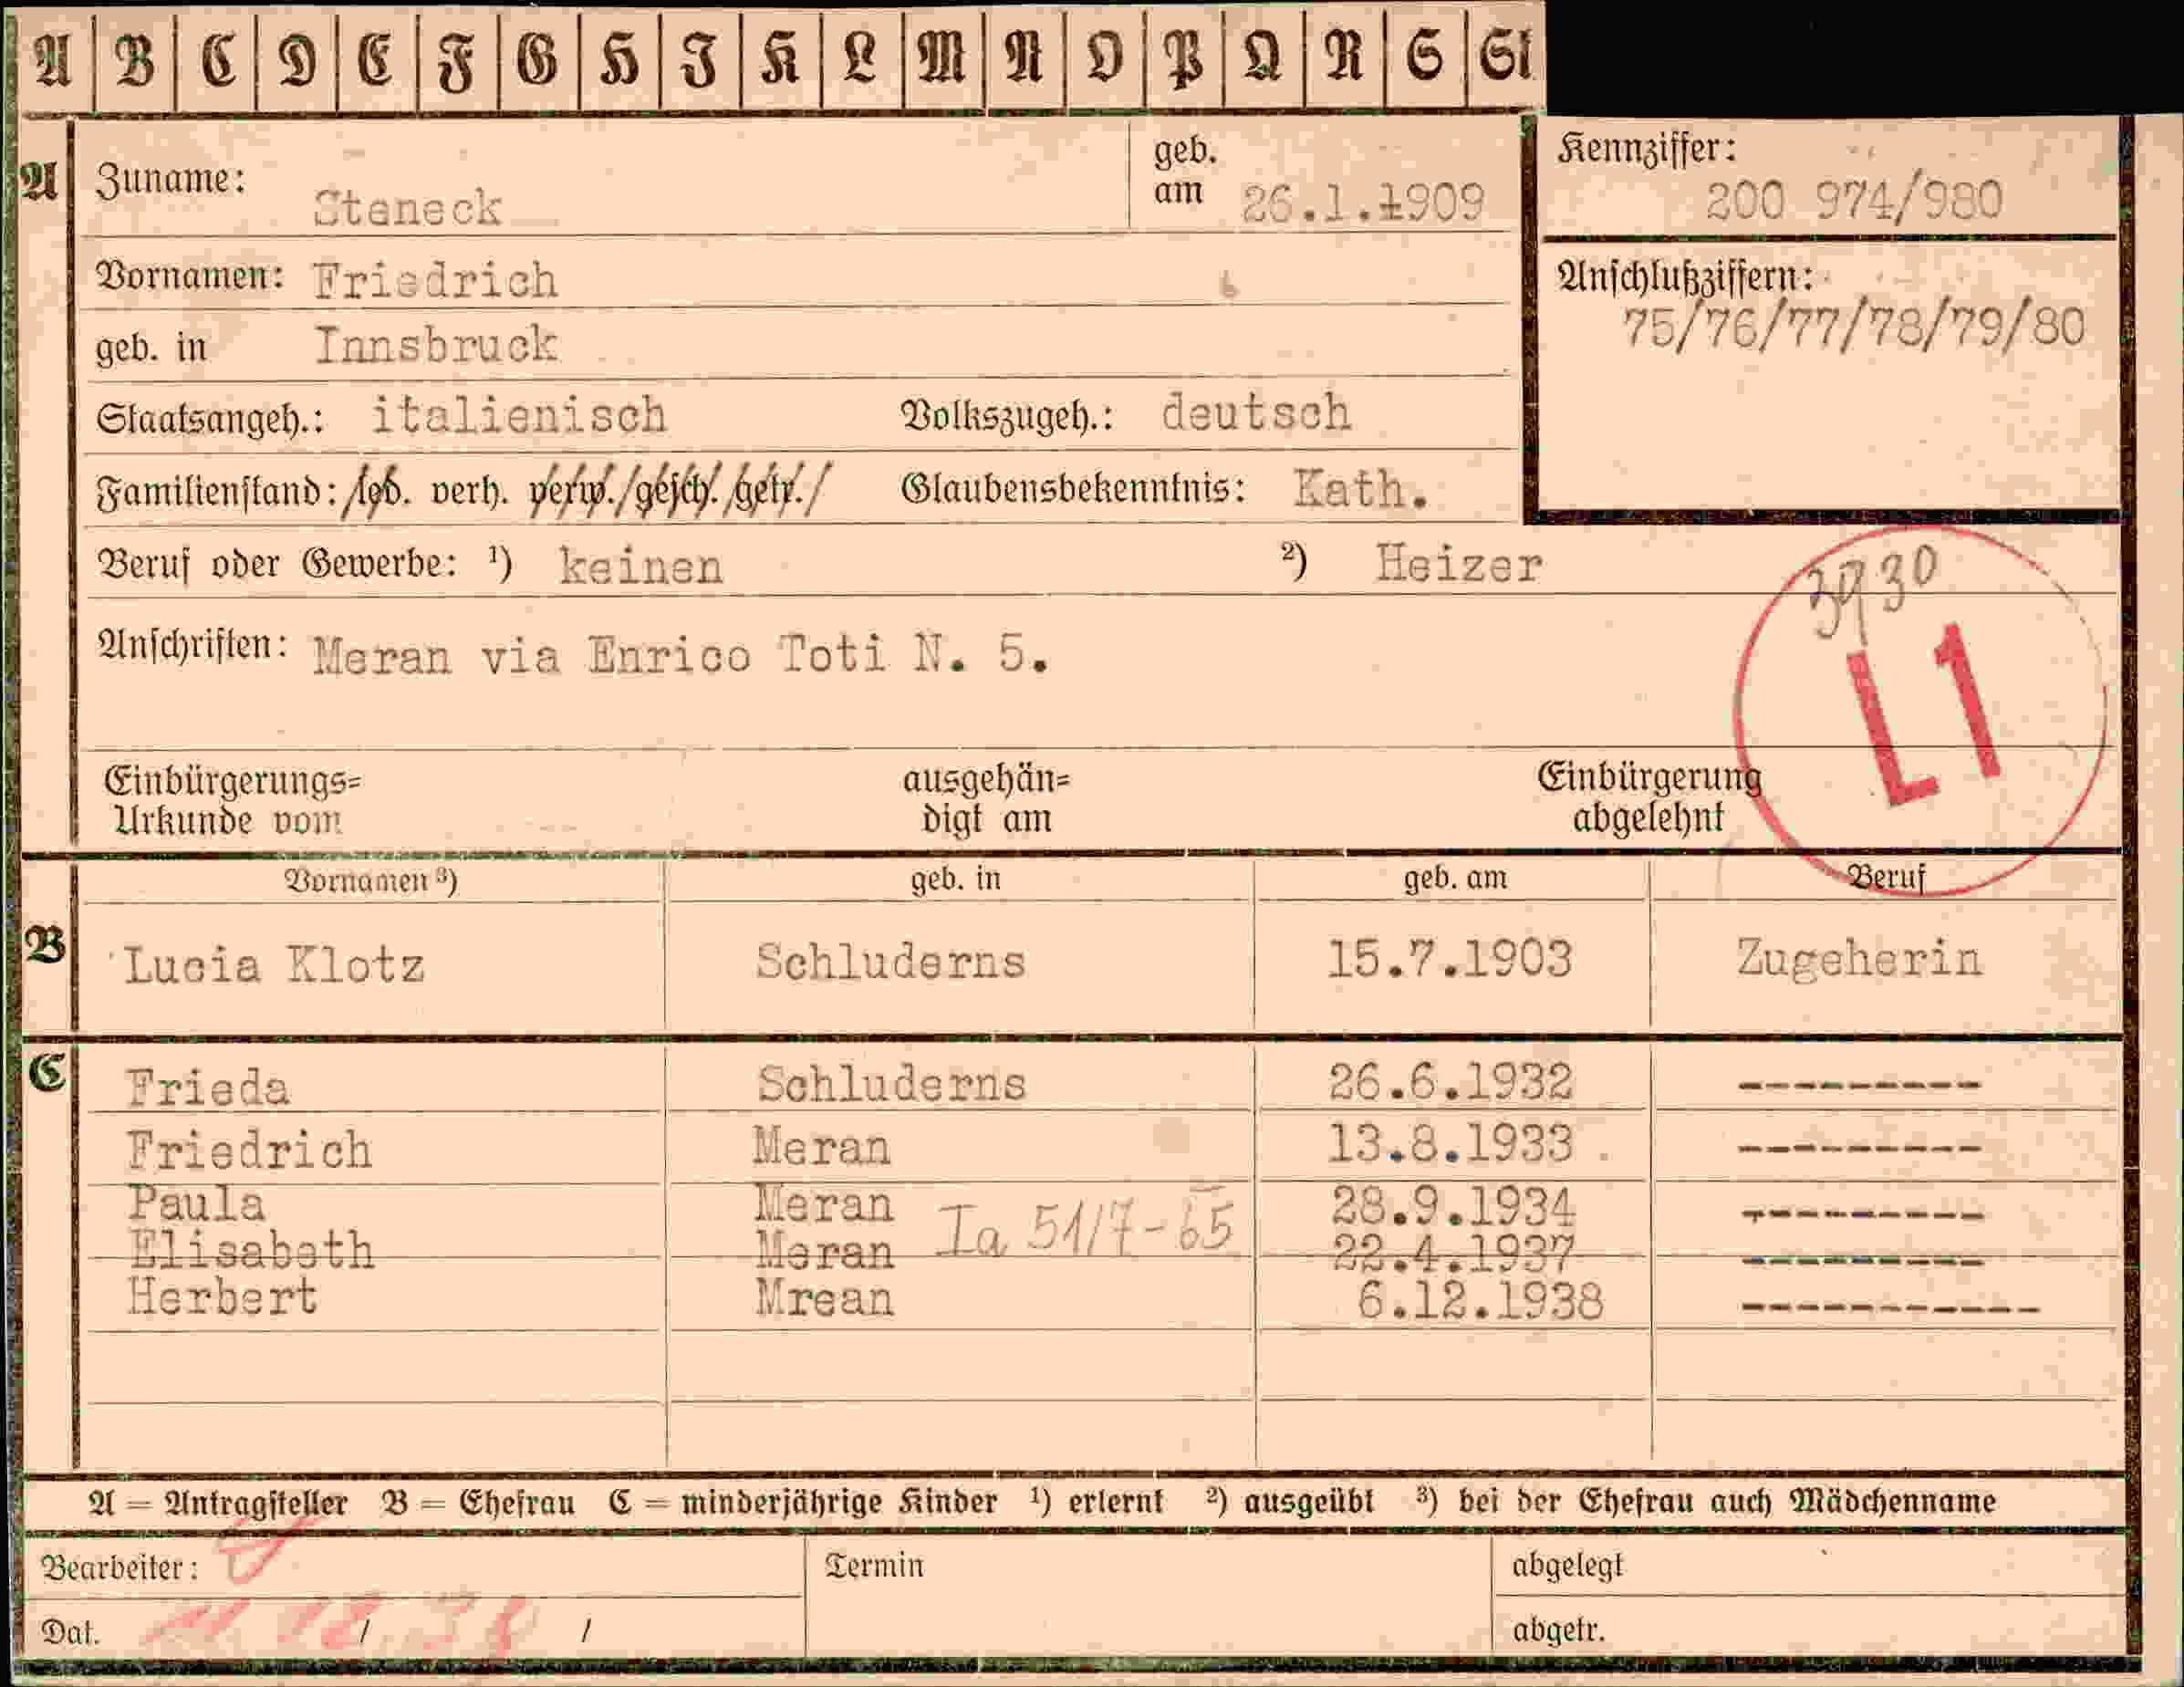 A B C D E F G H I K L M N O P Q R S St
A Zuname: Steneck geb. am 26.1.1909
Kennziffer: 200 974/980
Vornamen: Friedrich
Anschlußziffern: 75/76/77/78/79/80
geb. in Innsbruck
Staatsangeh.: italienisch Volkszugeh.: deutsch
Familienstand: led. verh. verw. gesch. getr. Glaubensbekenntnis: Kath.
Beruf oder Gewerbe: ¹) keinen ²) Heizer
Anschriften: Meran via Enrico Toti N. 5.
L1
Einbürgerungs= ausgehän= Einbürgerung
Urkunde vom digt am abgelehnt
Vornamen ³) geb. in geb. am Beruf
B Lucia Klotz Schluderns 15.7.1903 Zugeherin
C Frieda Schluderns 26.6.1932 ---------
Friedrich Meran 13.8.1933 ---------
Paula Meran 28.9.1934 ---------
Ia 51/7-65
Elisabeth Meran 22.4.1937 ---------
Herbert Mrean 6.12.1938 -----------
A = Antragsteller B = Ehefrau C = minderjährige Kinder ¹) erlernt ²) ausgeübt ³) bei der Ehefrau auch Mädchenname
Bearbeiter: Termin abgelegt
Dat. / / abgetr.